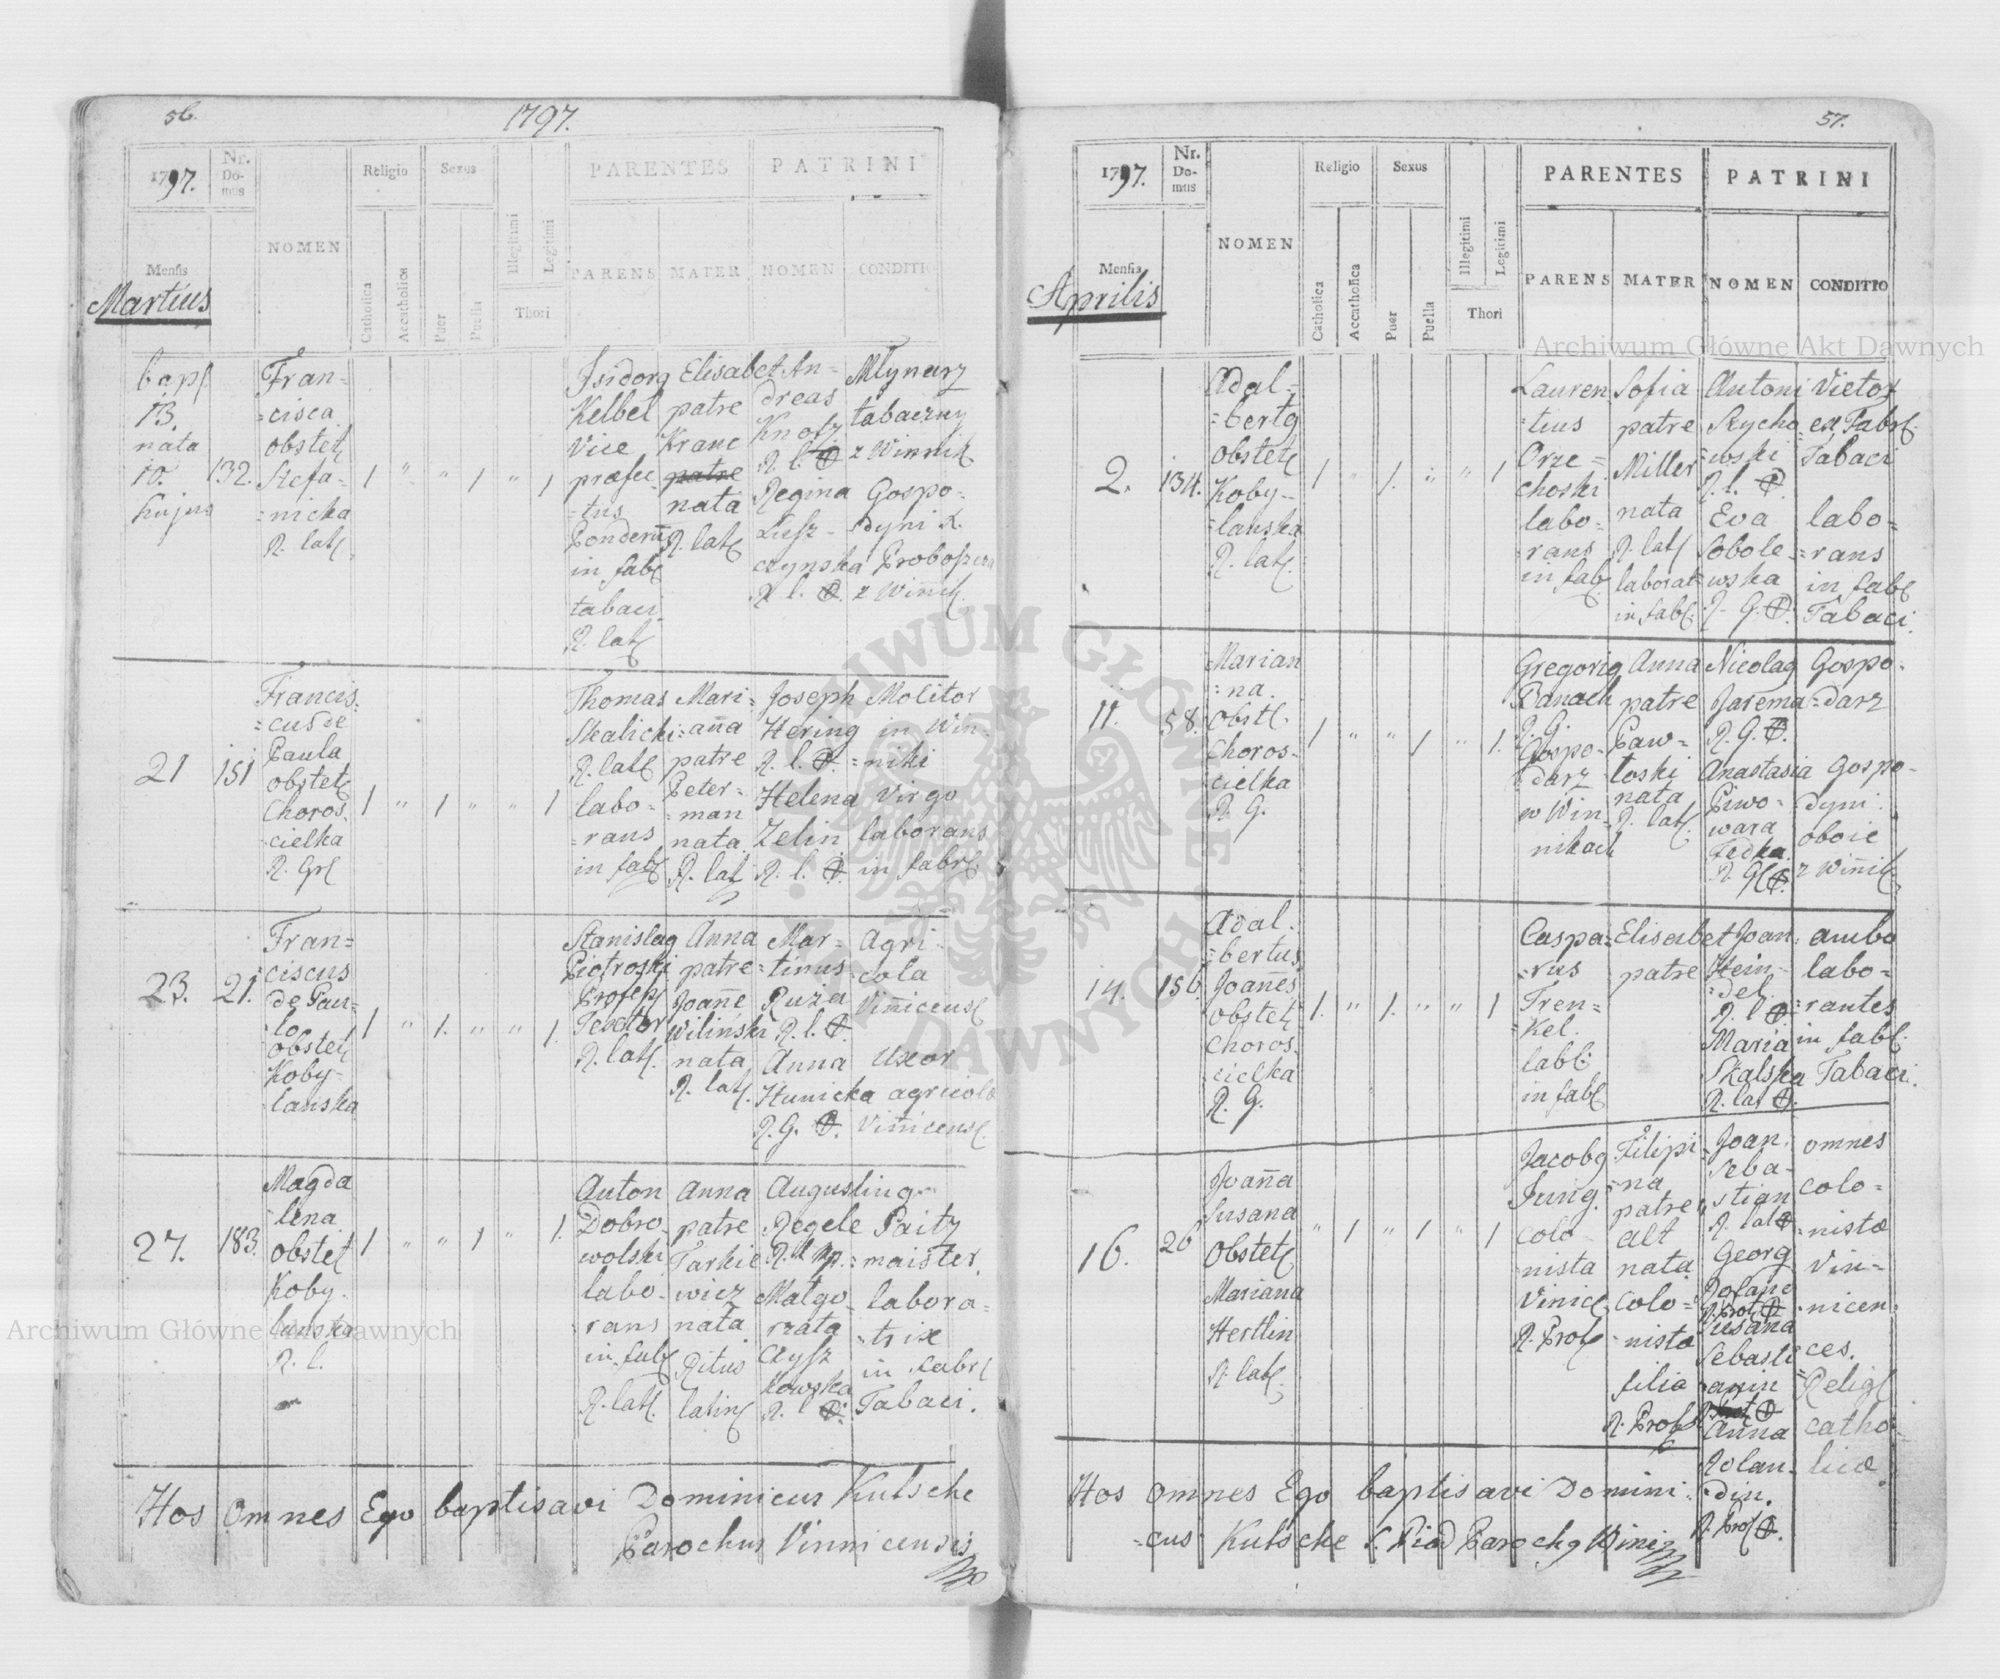 56.
1797.
1797.
Nr. Domus
NOMEN
Religio
Sexus
PARENTES
PATRINI
Mensis
Martius
Catholica
Accatholica
Puer
Puella
Illegitimi
Legitimi
Thori
PARENS
MATER
NOMEN
CONDITIO
bapt
13.
nata
10.
hujus
132.
Fran=
=cisca
obstet
Stefa=
=nicka
R. lat
1 " " 1 " 1
Isidorg
Kelbel
Vice
præfec
=tus
Ponderu
in fab
tabaci
R. lat
Elisabet
patre
Kranc
patre
nata
R. lat
An=
dreas
Knotz
R. l.
Regina
Lusz=
czynska
R. l.
Mlynarz
tabaczny
z Winnik
Gospo=
dyni X.
Proboszcza
z Winnik
21
151
Francis=
=cus de
Paula
obstet
Choros=
=cielka
R. Gr
1 " 1 " " 1
Thomas
Skalicki
R. lat
labo=
=rans
in fab
Mari=
=anna
patre
Peter=
=man
nata
R. lat
Joseph
Hering
R. l.
Helena
Zelin
R. l.
Molitor
in Win=
=niki
Virgo
laborans
in fabr
23.
21.
Fran=
ciscus
de Pau=
lo
obstet
Koby=
lanska
1 " 1. " " 1.
Stanislag
Piotroski
Profes
Textor
R. lat
Anna
patre
Joanne
Wilinski
nata
R. lat
Mar=
=tinus
Ruza
R. l.
Anna
Hunicka
R. G.
Agri=
cola
Vinnicens
Uxor
agricolæ
Vinnicens
27.
183.
Magda
lena
obstet
Koby=
lanska
R. l.
1 " " 1 " 1.
Anton
Dobro=
wolski
labo=
rans
in fab
R. lat
Anna
patre
Tarkie
wicz
nata
Ritus
latin
Augusting
Regele
Malgo
rzata
Czysz
kowska
R. l
Paitz
=maister
labora=
=trix
in fabr
Tabaci.
Hos omnes Ego baptisavi Dominicus Kutsche
Parochus Vinnicensis
57.
1797.
Nr. Domus
NOMEN
Religio
Sexus
PARENTES
PATRINI
Mensis
Aprilis
Catholica
Accatholica
Puer
Puella
Illegitimi
Legitimi
Thori
PARENS
MATER
NOMEN
CONDITIO
2.
134.
Adal=
=bertg
obstet
Koby=
=lanska
R. lat
1 " 1. " " 1
Lauren
=tius
Orze=
choski
labo=
=rans
in fab
Sofia
patre
Miller
nata
R. lat
laborat
in fab
Antoni
Rycho
=wski
R. l.
Eva
Sobole=
=wska
R. G.
Victor
ex Fabr
Tabaci
labo=
=rans
in fab
Tabaci.
11.
58.
Marian
=na.
Obst
Choros=
cielka
R. G.
1 " " 1 " 1.
Gregorig
Banach
R. G.
Gospo=
darz
w Win=
nikach
Anna
patre
Paw=
loski
nata
R. lat
Nicolag
Jarema
R. G.
Anastasia
Piwo=
wara
Fedka
R. G
Gospo=
=darz
Gospo=
dyni
oboie
z Winnik
14.
156.
Adal=
=bertus
Joannes
obstet
Choros=
cielka
R. G.
1. " 1. " " 1
Caspa=
=rus
Fren=
=kel.
lab
in fab
Elisabet
patre
Joan
Hein=
=del
R. l
Maria
Skalska
R. lat
ambo
labo=
=rantes
in fab
Tabaci.
16.
26
Joanna
Susana
Obstet
Mariana
Hertlin
R. lat
" 1 " 1 " 1
Jacobg
Jung
colo=
nista
Vinic
R. Prot
Filipi=
=na
patre
alt
nata
colo=
nistæ
filia
R. Prot
Joan
Seba=
stian
R. lat
Georg
Roland
R. Prot
Susana
Sebasti
=anin
Anna
Rolan=
din.
R. Prot
omnes
colo=
nistæ
Vin=
=nicen=
ces.
Relig
catho=
licæ
Hos omnes Ego baptisavi Domini=
=cus Kutsche Parochg
Archiwum Główne Akt Dawnych
Archiwum Główne Akt Dawnych
ARCHIWUM GŁÓWNE AKT DAWNYCH